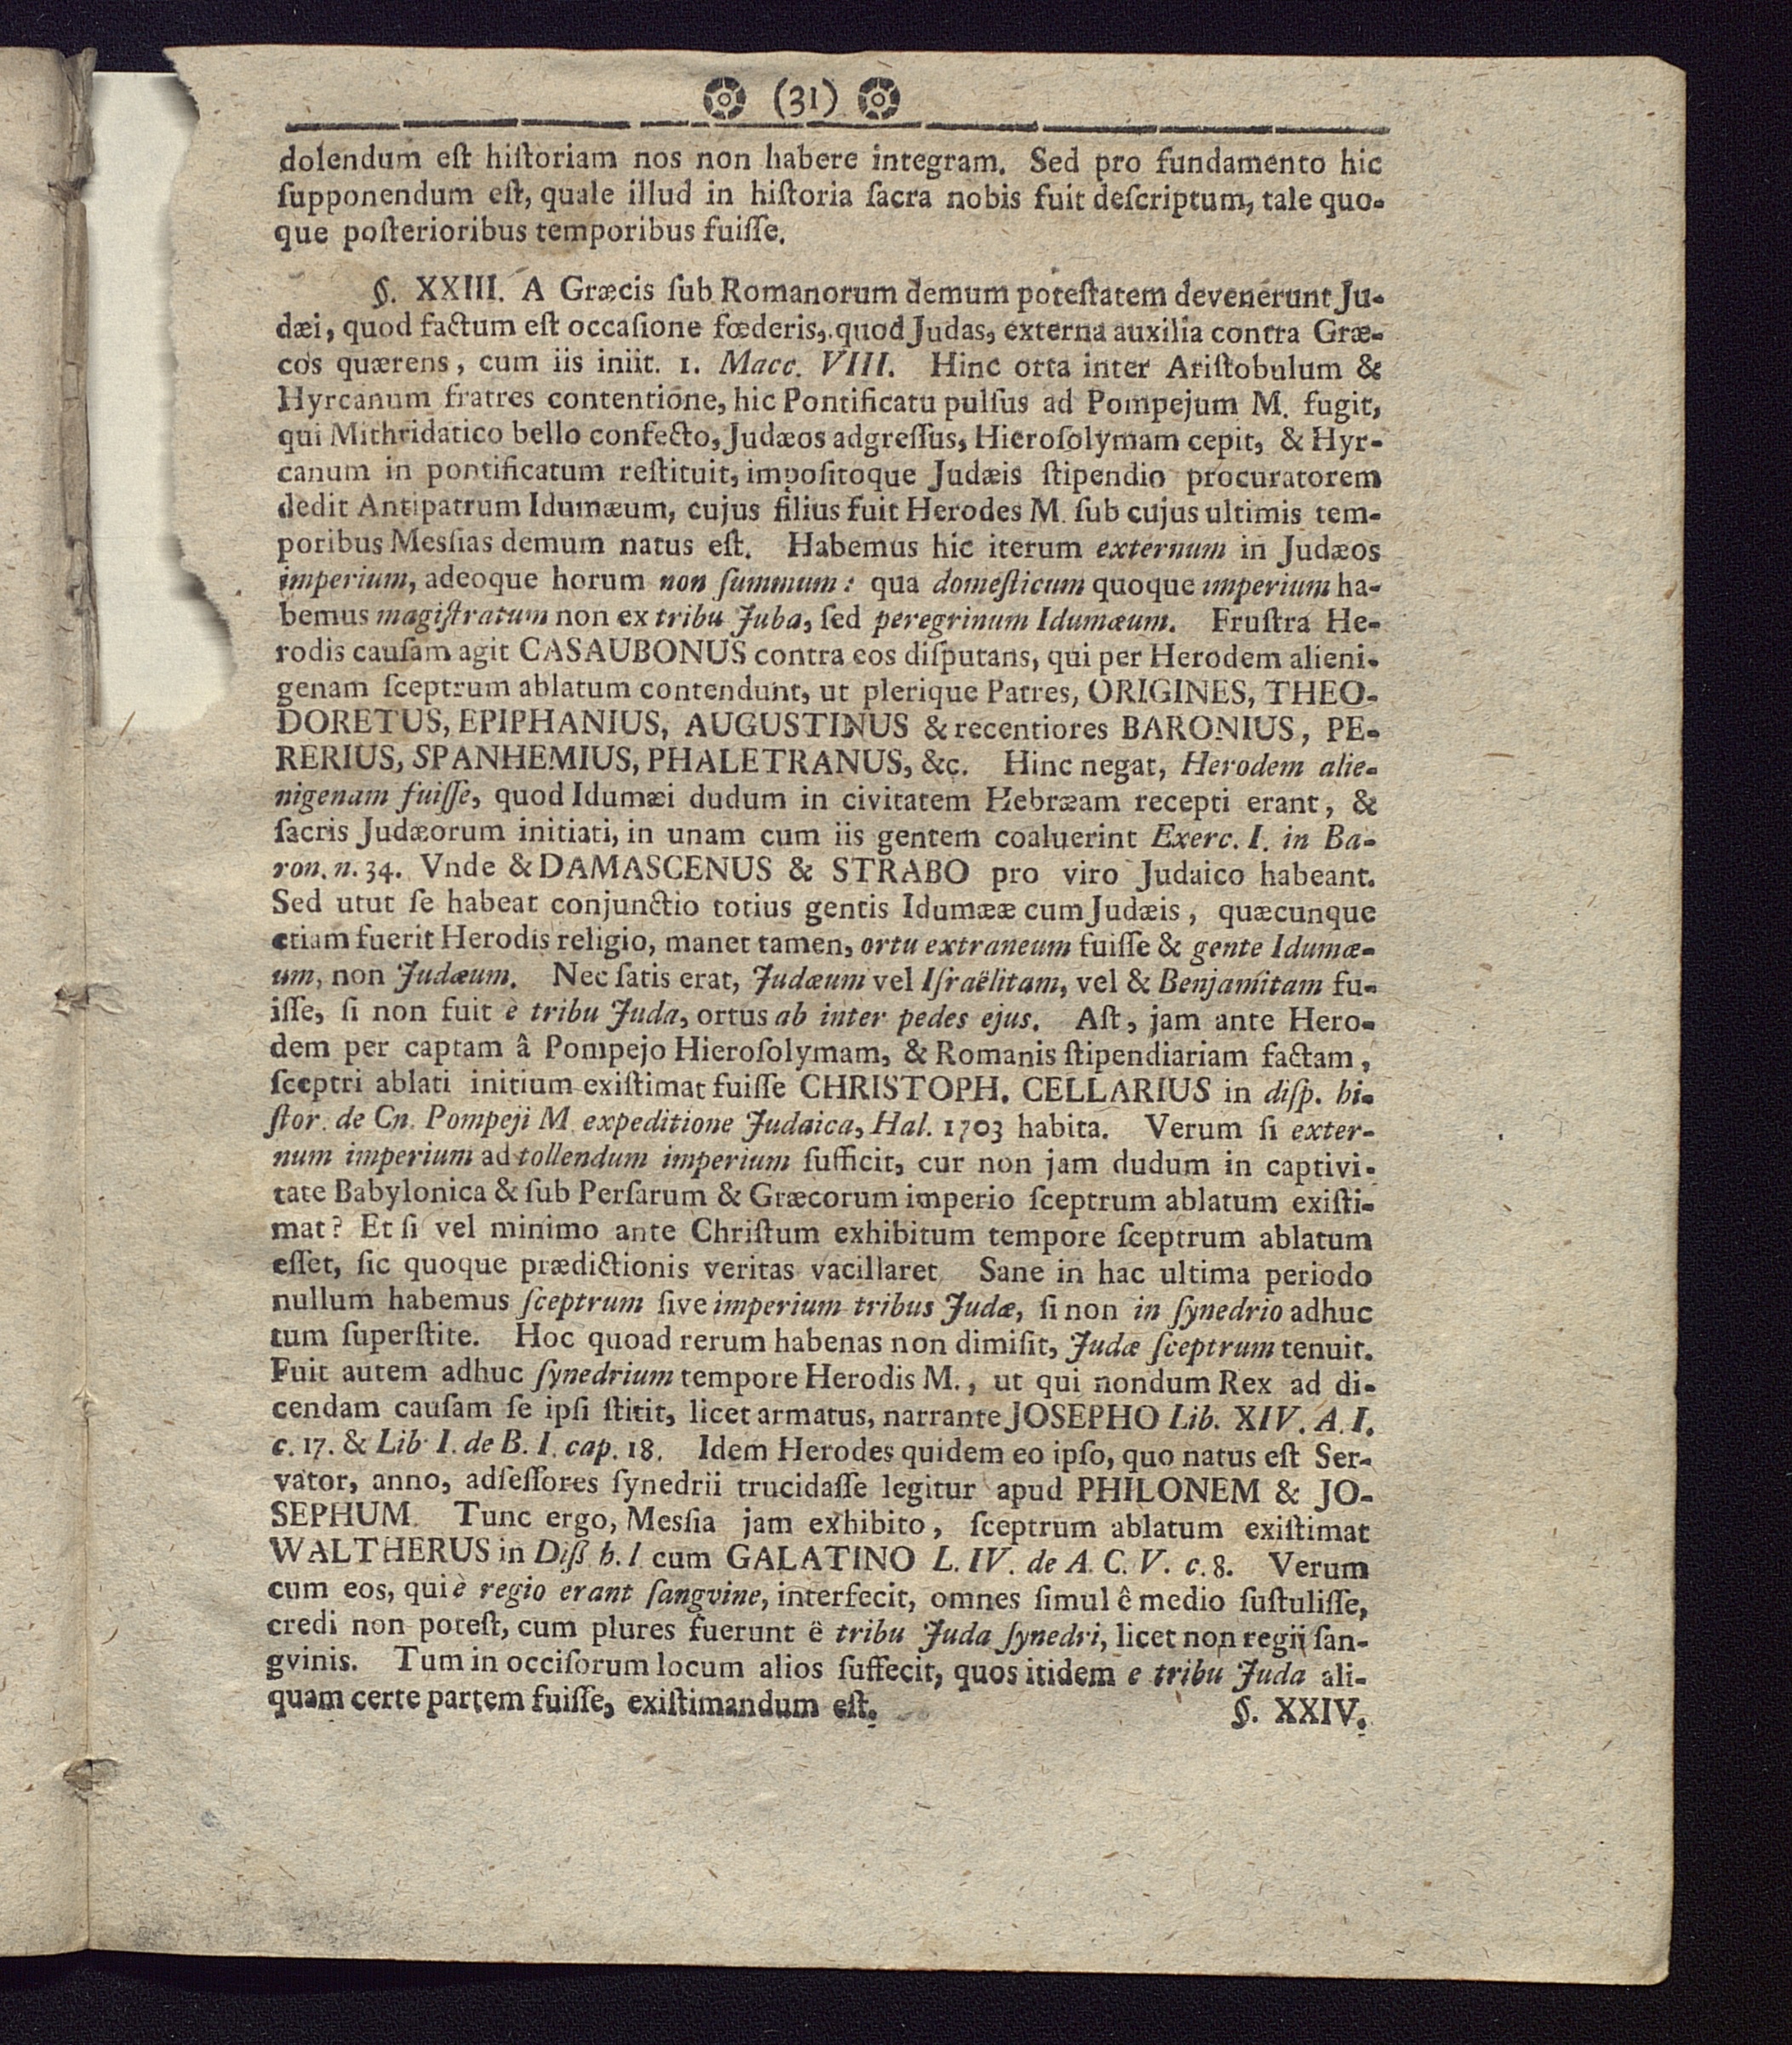 (31)
dolendum eſt hiſtoriam nos non habere integram. Sed pro fundamento hic
ſupponendum eſt, quale illud in hiſtoria ſacra nobis fuit deſcriptum, tale quo-
que poſterioribus temporibus fuiſſe.
§. XXIII. A Græcis ſub Romanorum demum poteſtatem devenerunt Ju-
dæi, quod factum eſt occaſione fœderis, quod Judas, externa auxilia contra Græ-
cos quærens, cum iis iniit. 1. Macc. VIII. Hinc orta inter Ariſtobulum &
Hyrcanum fratres contentione, hic Pontificatu pulſus ad Pompejum M. fugit,
qui Mithridatico bello confecto, Judæos adgreſſus, Hieroſolymam cepit, & Hyr-
canum in pontificatum reſtituit, impoſitoque Judæis ſtipendio procuratorem
dedit Antipatrum Idumæum, cujus filius fuit Herodes M. ſub cujus ultimis tem-
poribus Meſſias demum natus eſt. Habemus hic iterum externum in Judæos
imperium, adeoque horum non ſummum: qua domeſticum quoque imperium ha-
bemus magiſtratum non ex tribu Juba, ſed peregrinum Idumæum. Fruſtra He-
rodis cauſam agit CASAUBONUS contra eos diſputans, qui per Herodem alieni-
genam ſceptrum ablatum contendunt, ut plerique Patres, ORIGINES, THEO-
DORETUS, EPIPHANIUS, AUGUSTINUS & recentiores BARONIUS, PE-
RERIUS, SPANHEMIUS, PHALETRANUS, &c. Hinc negat, Herodem alie-
nigenam fuiſſe, quod Idumæi dudum in civitatem Hebræam recepti erant, &
ſacris Judæorum initiati, in unam cum iis gentem coaluerint Exerc. I. in Ba-
ron. n. 34. Vnde & DAMASCENUS & STRABO pro viro Judaico habeant.
Sed utut ſe habeat conjunctio totius gentis Idumææ cum Judæis, quæcunque
etiam fuerit Herodis religio, manet tamen, ortu extraneum fuiſſe & gente Idumæ-
um, non Judæum. Nec ſatis erat, Judæum vel Iſraëlitam, vel & Benjamitam fu-
iſſe, ſi non fuit è tribu Juda, ortus ab inter pedes ejus. Aſt, jam ante Hero-
dem per captam â Pompejo Hieroſolymam, & Romanis ſtipendiariam factam,
ſceptri ablati initium exiſtimat fuiſſe CHRISTOPH. CELLARIUS in diſp. hi-
ſtor. de Cn. Pompeji M. expeditione Judaica, Hal. 1703 habita. Verum ſi exter-
num imperium ad tollendum imperium ſufficit, cur non jam dudum in captivi-
tate Babylonica & ſub Perſarum & Græcorum imperio ſceptrum ablatum exiſti-
mat? Et ſi vel minimo ante Chriſtum exhibitum tempore ſceptrum ablatum
eſſet, ſic quoque prædictionis veritas vacillaret Sane in hac ultima periodo
nullum habemus ſceptrum ſive imperium tribus Judæ, ſi non in ſynedrio adhuc
tum ſuperſtite. Hoc quoad rerum habenas non dimiſit, Judæ ſceptrum tenuit.
Fuit autem adhuc ſynedrium tempore Herodis M., ut qui nondum Rex ad di-
cendam cauſam ſe ipſi ſtitit, licet armatus, narrante JOSEPHO Lib. XIV. A. I.
c. 17. & Lib. I. de B. I. cap. 18. Idem Herodes quidem eo ipſo, quo natus eſt Ser-
vator, anno, adſeſſores ſynedrii trucidaſſe legitur apud PHILONEM & JO-
SEPHUM. Tunc ergo, Meſſia jam exhibito, ſceptrum ablatum exiſtimat
WALTHERUS in Diß. h. l. cum GALATINO L. IV. de A. C. V. c. 8. Verum
cum eos, qui è regio erant ſangvine, interfecit, omnes ſimul ê medio ſuſtuliſſe,
credi non poteſt, cum plures fuerunt ë tribu Juda ſynedri, licet non regii ſan-
gvinis. Tum in occiſorum locum alios ſuffecit, quos itidem e tribu Juda ali-
quam certe partem fuiſſe, exiſtimandum eſt.
§. XXIV.